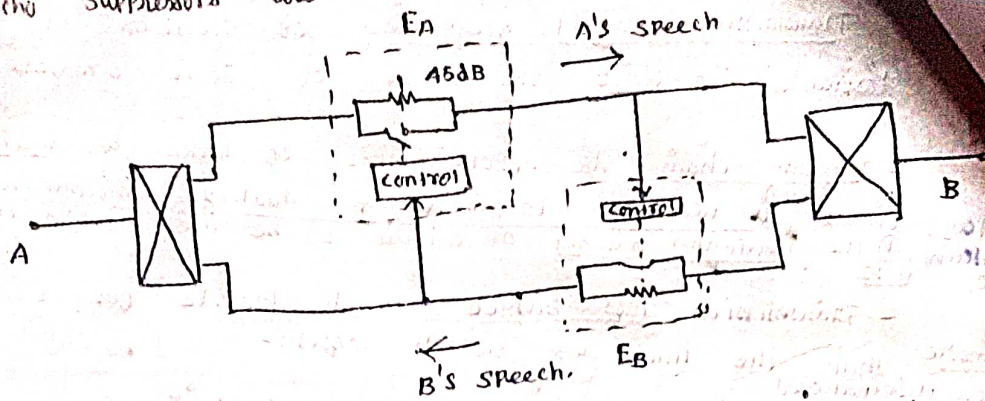 suppressors
EA
A's speech
45dB
control
control
A
B
EB
B's speech.